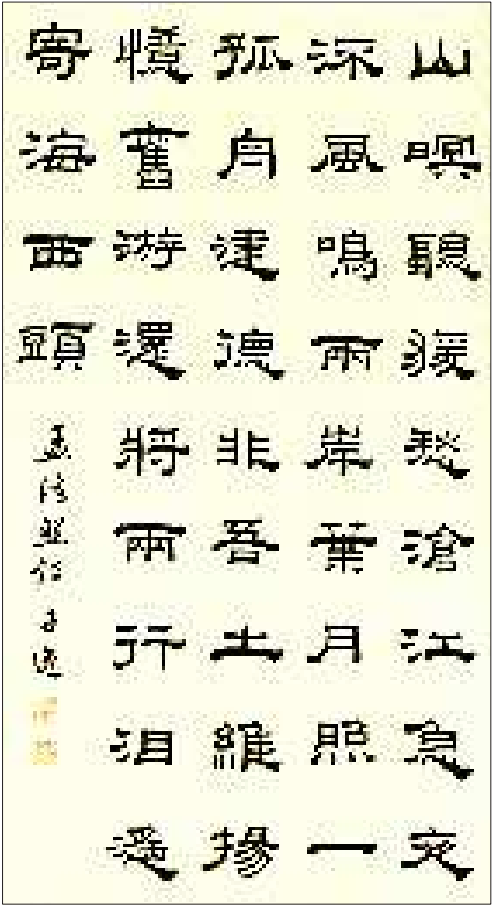 山暝聽猿愁滄江急夜
流風鳴兩岸葉月照一
孤舟建德非吾土維揚
憶舊游還將兩行泪遥
寄海西頭
孟浩然